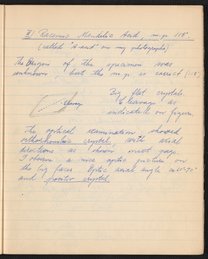 II) Racemic Mandelic Acid, m.p. 118°
(called "A-and" on my photographs)
The Origin of the specimen was
unknown, but the m.p. is correct (118°)
Big flat crystals.
Cleavage as
indicated on figure.
The optical examination showed
orthorhombic crystal, with axial
directions as shown next page.
I observe a nice optic picture on
the big faces. Optic axial angle
and positive crystal.